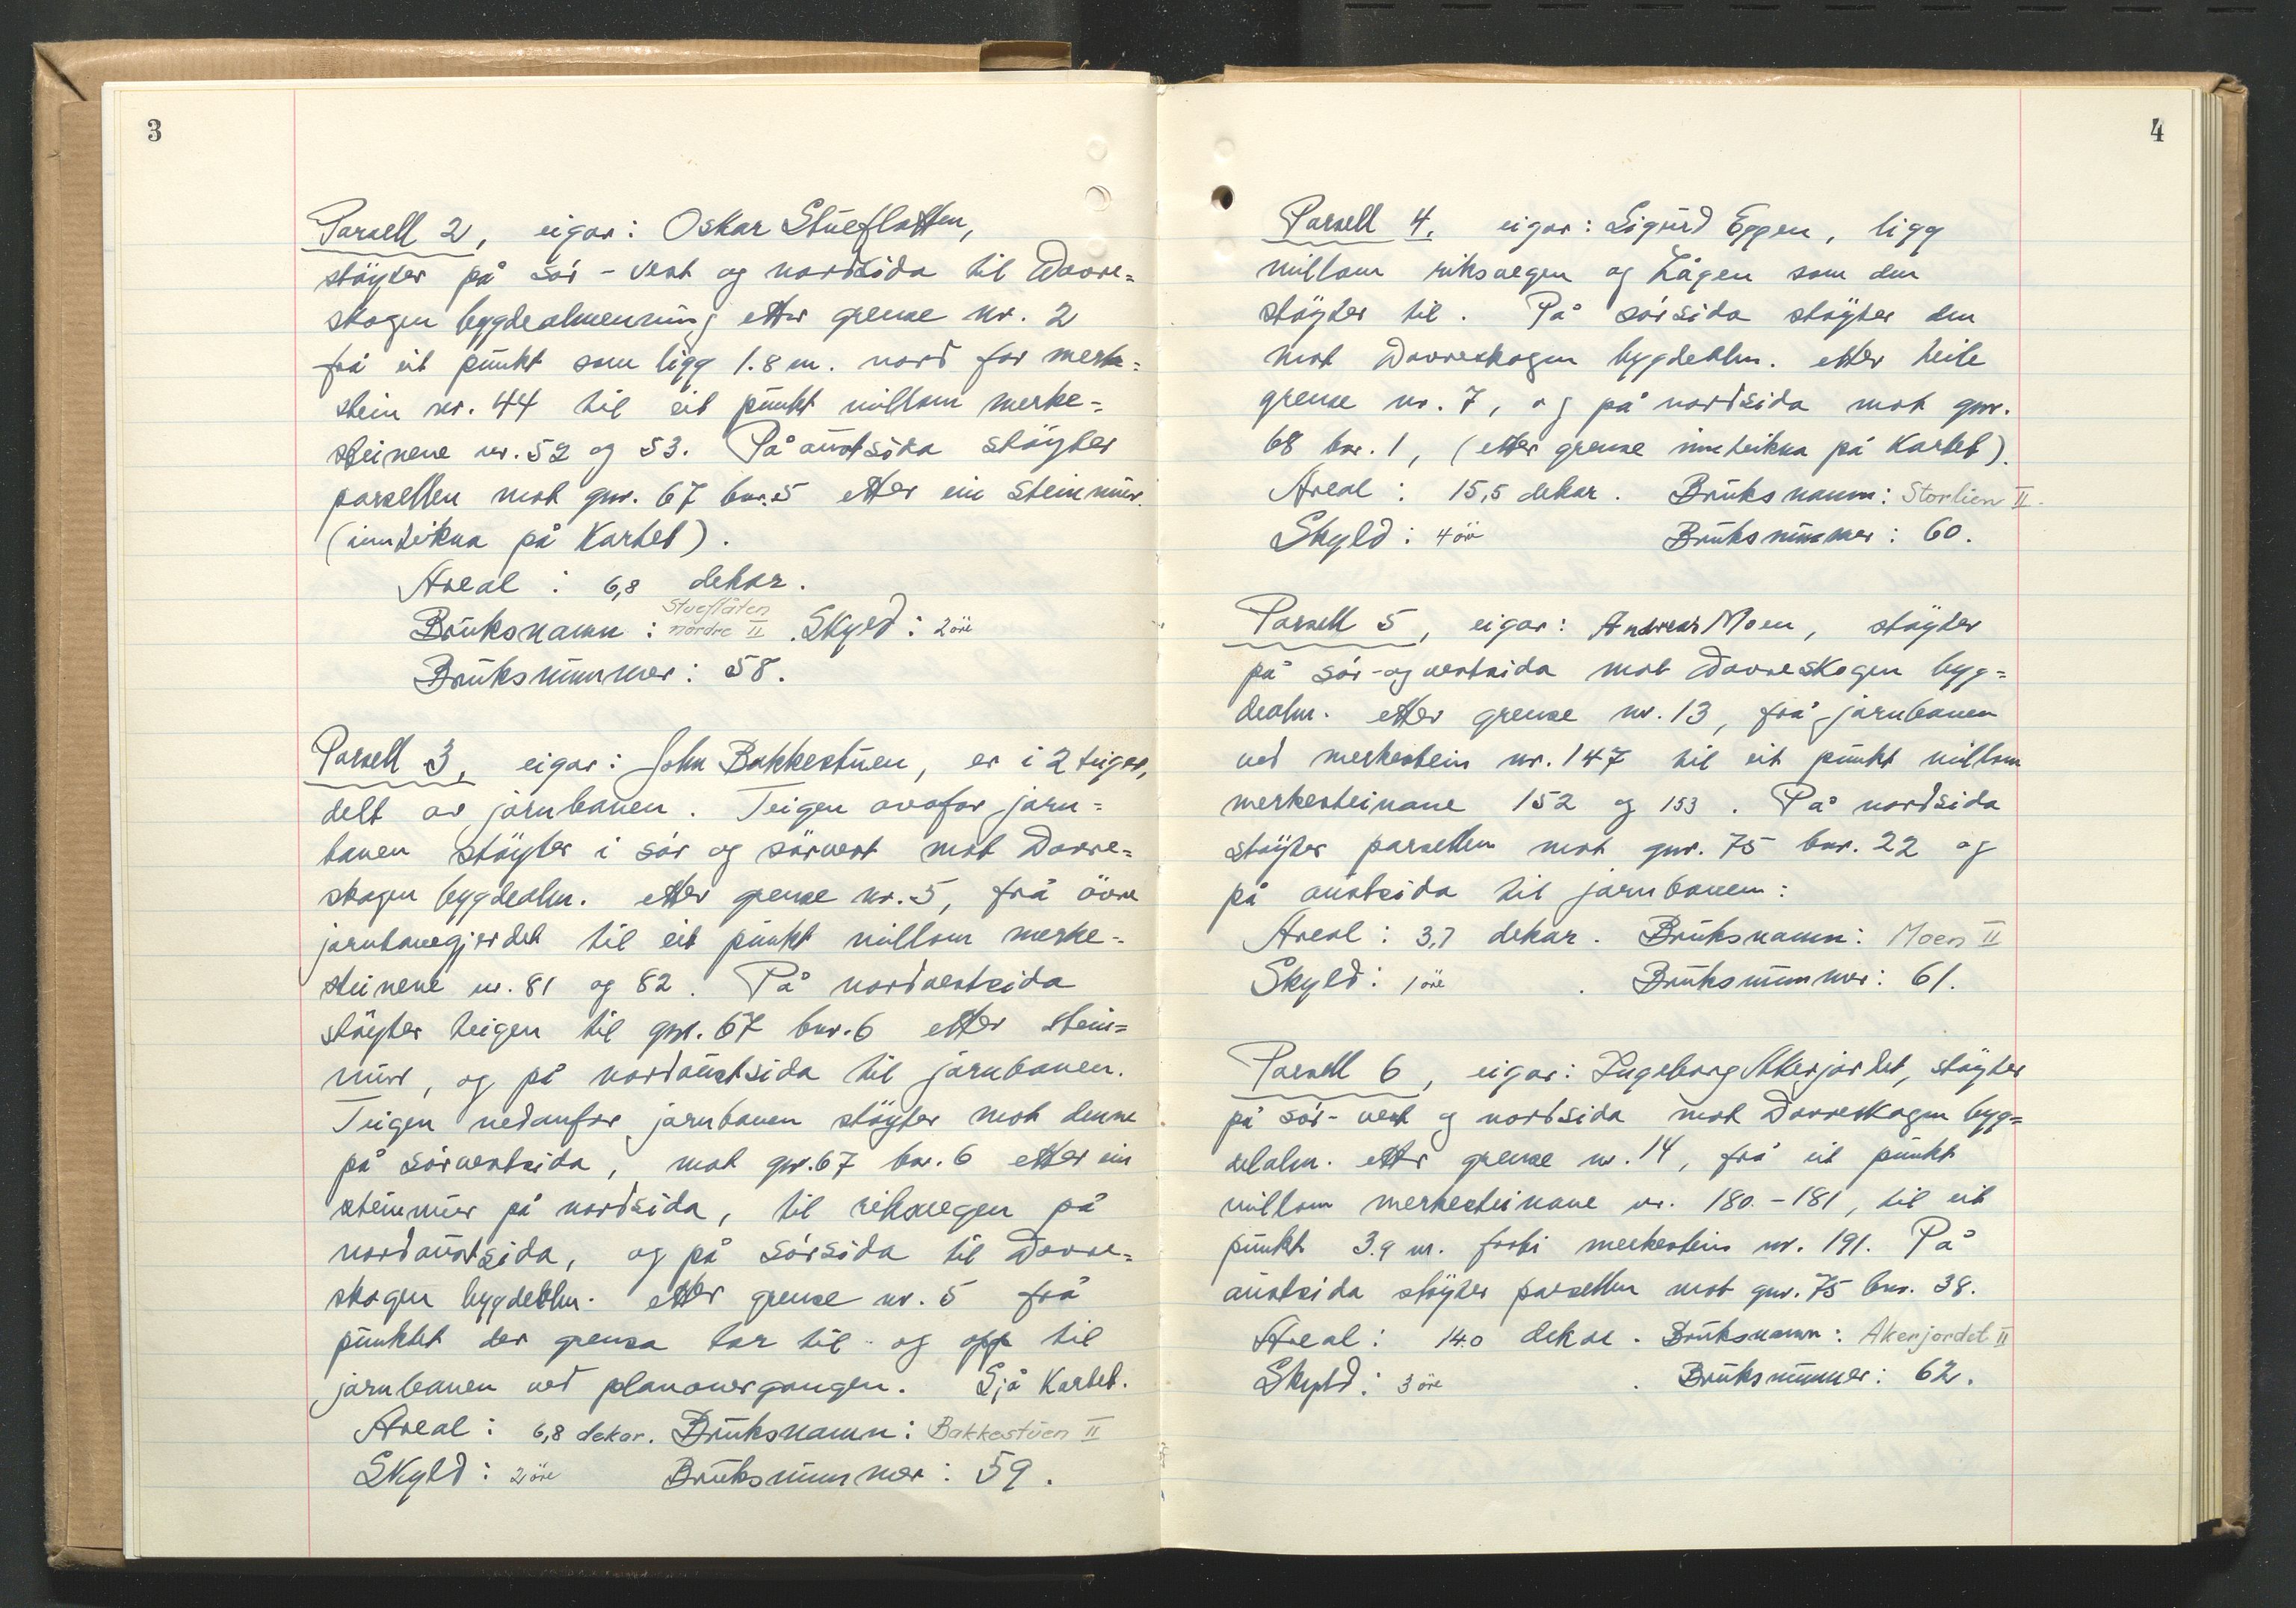 3
Parsell 2, eigar: Oskar Stueflotten,
stöyter på sør-vest og nordsida til Dovre=
skogen bygdealmenning etter grense nr. 2
frå eit punkt som ligg 1.8 m. nord for merke=
stein nr. 44 til eit punkt millom merke-=
steinene nr. 52 og 53. På austsida stöyter
parsellen mot gnr. 67 bnr. 5 etter ein steinmur.
(innteikna på Kartet).
Areal: 6,8 dekar.
Stueflåten
Bruksnamn: nordre II. Skyld: 2 öre
Bruksnummer: 58.
Parsell 3, eigar: John Bakkestuen, er i 2 teiger,
delt av jarnbanen. Teigen ovafor jarn=
banen stöyter i sør og sørvest mot Dovre=
skogen bygdealm. etter grense nr. 5, frå övre
jarnbanegjerdet til eit punkt millom merke-=
steinene nr. 81 og 82. På nordvestsida
stöyter teigen til gnr. 67 bnr. 6 etter stein=
mur, og på nordaustsida til jarnbanen.
Teigen nedanfor jarnbanen stöyter mot denne
på sørvestsida, mot gnr. 67 bnr. 6 etter ein
steinmur på nordsida, til riksvegen på
nordaustsida, og på sørsida til Dovre=
skogen bygdealm. etter grense nr. 5 frå
punktet der grensa tar til og opp til
jarnbanen ved planovergangen. Sjå Kartet.
Areal: 6,8 dekar. Bruksnamn: Bakkestuen II
Skyld: 2 öre Bruksnummer: 59.
4
Parsell 4, eigar: Sigurd Eggen, ligg
millom riksvegen og Lågen som den
stöyter til. På sørsida stöyter den
mot Dovreskogen bygdealm. etter heile
grense nr. 7, og på nordsida mot gnr.
68 bnr. 1, (etter grense innteikna på Kartet).
Areal: 15,5 dekar. Bruksnamn: Storlien II.
Skyld: 4 öre Bruksnummer: 60.
Parsell 5, eigar: Andreas Moen, stöyter
på sør-og vestsida mot Dovreskogen byg=
dealm. etter grense nr. 13, frå jarnbanen
ved merkestein nr. 147 til eit punkt millom
merkesteinane 152 og 153. På nordsida
stöyter parsellen mot gnr. 75 bnr. 22 og
på austsida til jarnbanen:
Areal: 3,7 dekar. Bruksnamn: Moen II
Skyld: 1 öre. Bruksnummer: 61.
Parsell 6, eigar: Ingeborg Akerjordet, stöyter
på sør- vest og nordsida mot Dovreskogen byg=
dealm. etter grense nr. 14, frå eit punkt
millom merkesteinane nr. 180-181, til eit
punkt 3.9 m. forbi merkestein nr. 191. På
austsida stöyter parsellen mot gnr. 75 bnr. 38.
Areal: 14.0 dekar. Bruksnamn: Akerjordet II
Skyld: 3 öre. Bruksnummer: 62.